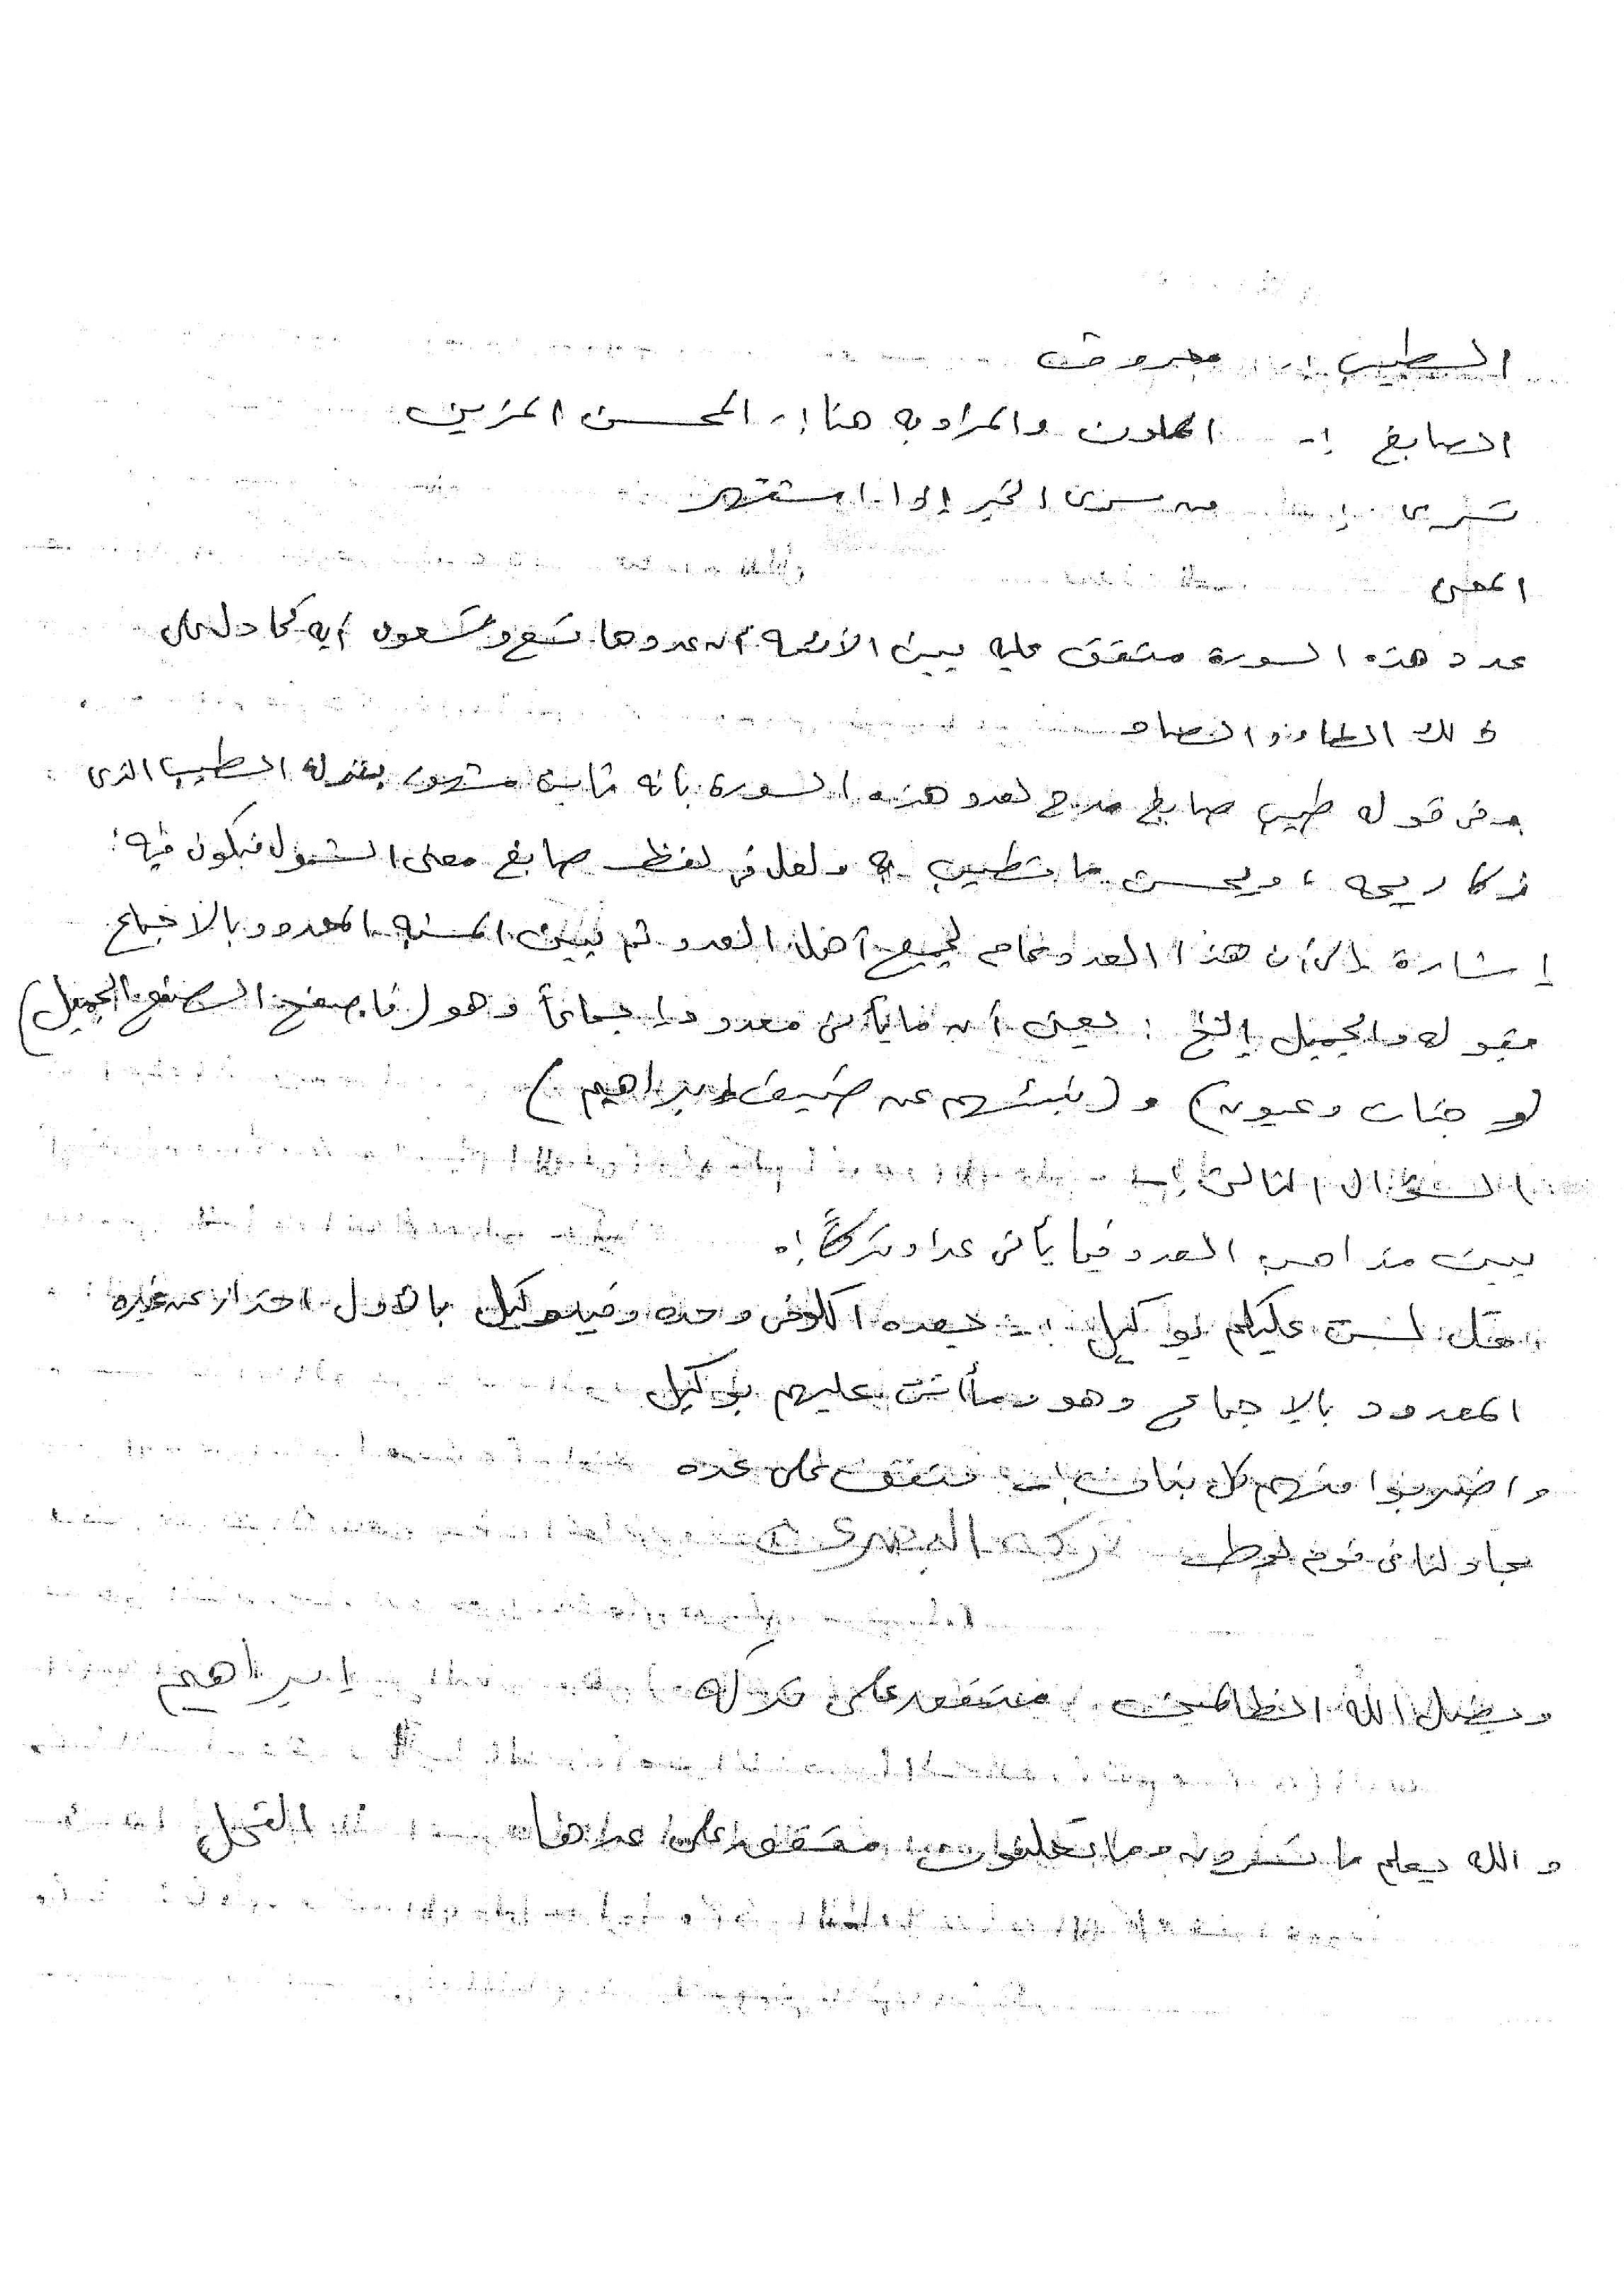 الطيب :- معروف
الصابغ :- الملون والمراد به هنا :- المحسن المزين
تسرى :- من سرى الخير إذا اشتهر
المعنى
عدد هذه السورة متفق عليه بين الأئمة أن عددها تسع وتسعون آيه كما دل على
ذلك الطاء والصاد
وفى قوله طيب صابغ مدح لعدد هذه السورة بأنه ثابت مشهور بمنزله الطيب الذى
زكا ريحه ، ويحسن ما تطيب به ولعل فى لفظ صابغ معنى الشمول فيكون فيه
إشارة إلى أن هذا العدد عام لجميع أهل العدد ثم بين المشبه المعدود بالاجماع
بقوله والجميل إلخ : يعنى أن ما يأتى معدود إجماعاً وهو (فاصفح الصفح الجميل)
(و جنات وعيون) و (نبئهم عن ضيف إبراهيم)
السؤال الثالث :-
بين مذاهب العدد فيما يأتى عدا وتركاً :-
قل لست عليكم بوكيل :- يعده الكوفى وحده وقيد وكيل بالاول احتراز عن غيره
المعدود بالاجماع وهو وما أنت عليهم بوكيل
واضربوا منهم كل بنان :- متفق على عده
يجادلنا فى قوم لوط تركه البصرى
ويضل الله الظالمين متفق على تركه إبراهيم
والله يعلم ما تسرون وما تعلنون متفق على عدها النحل